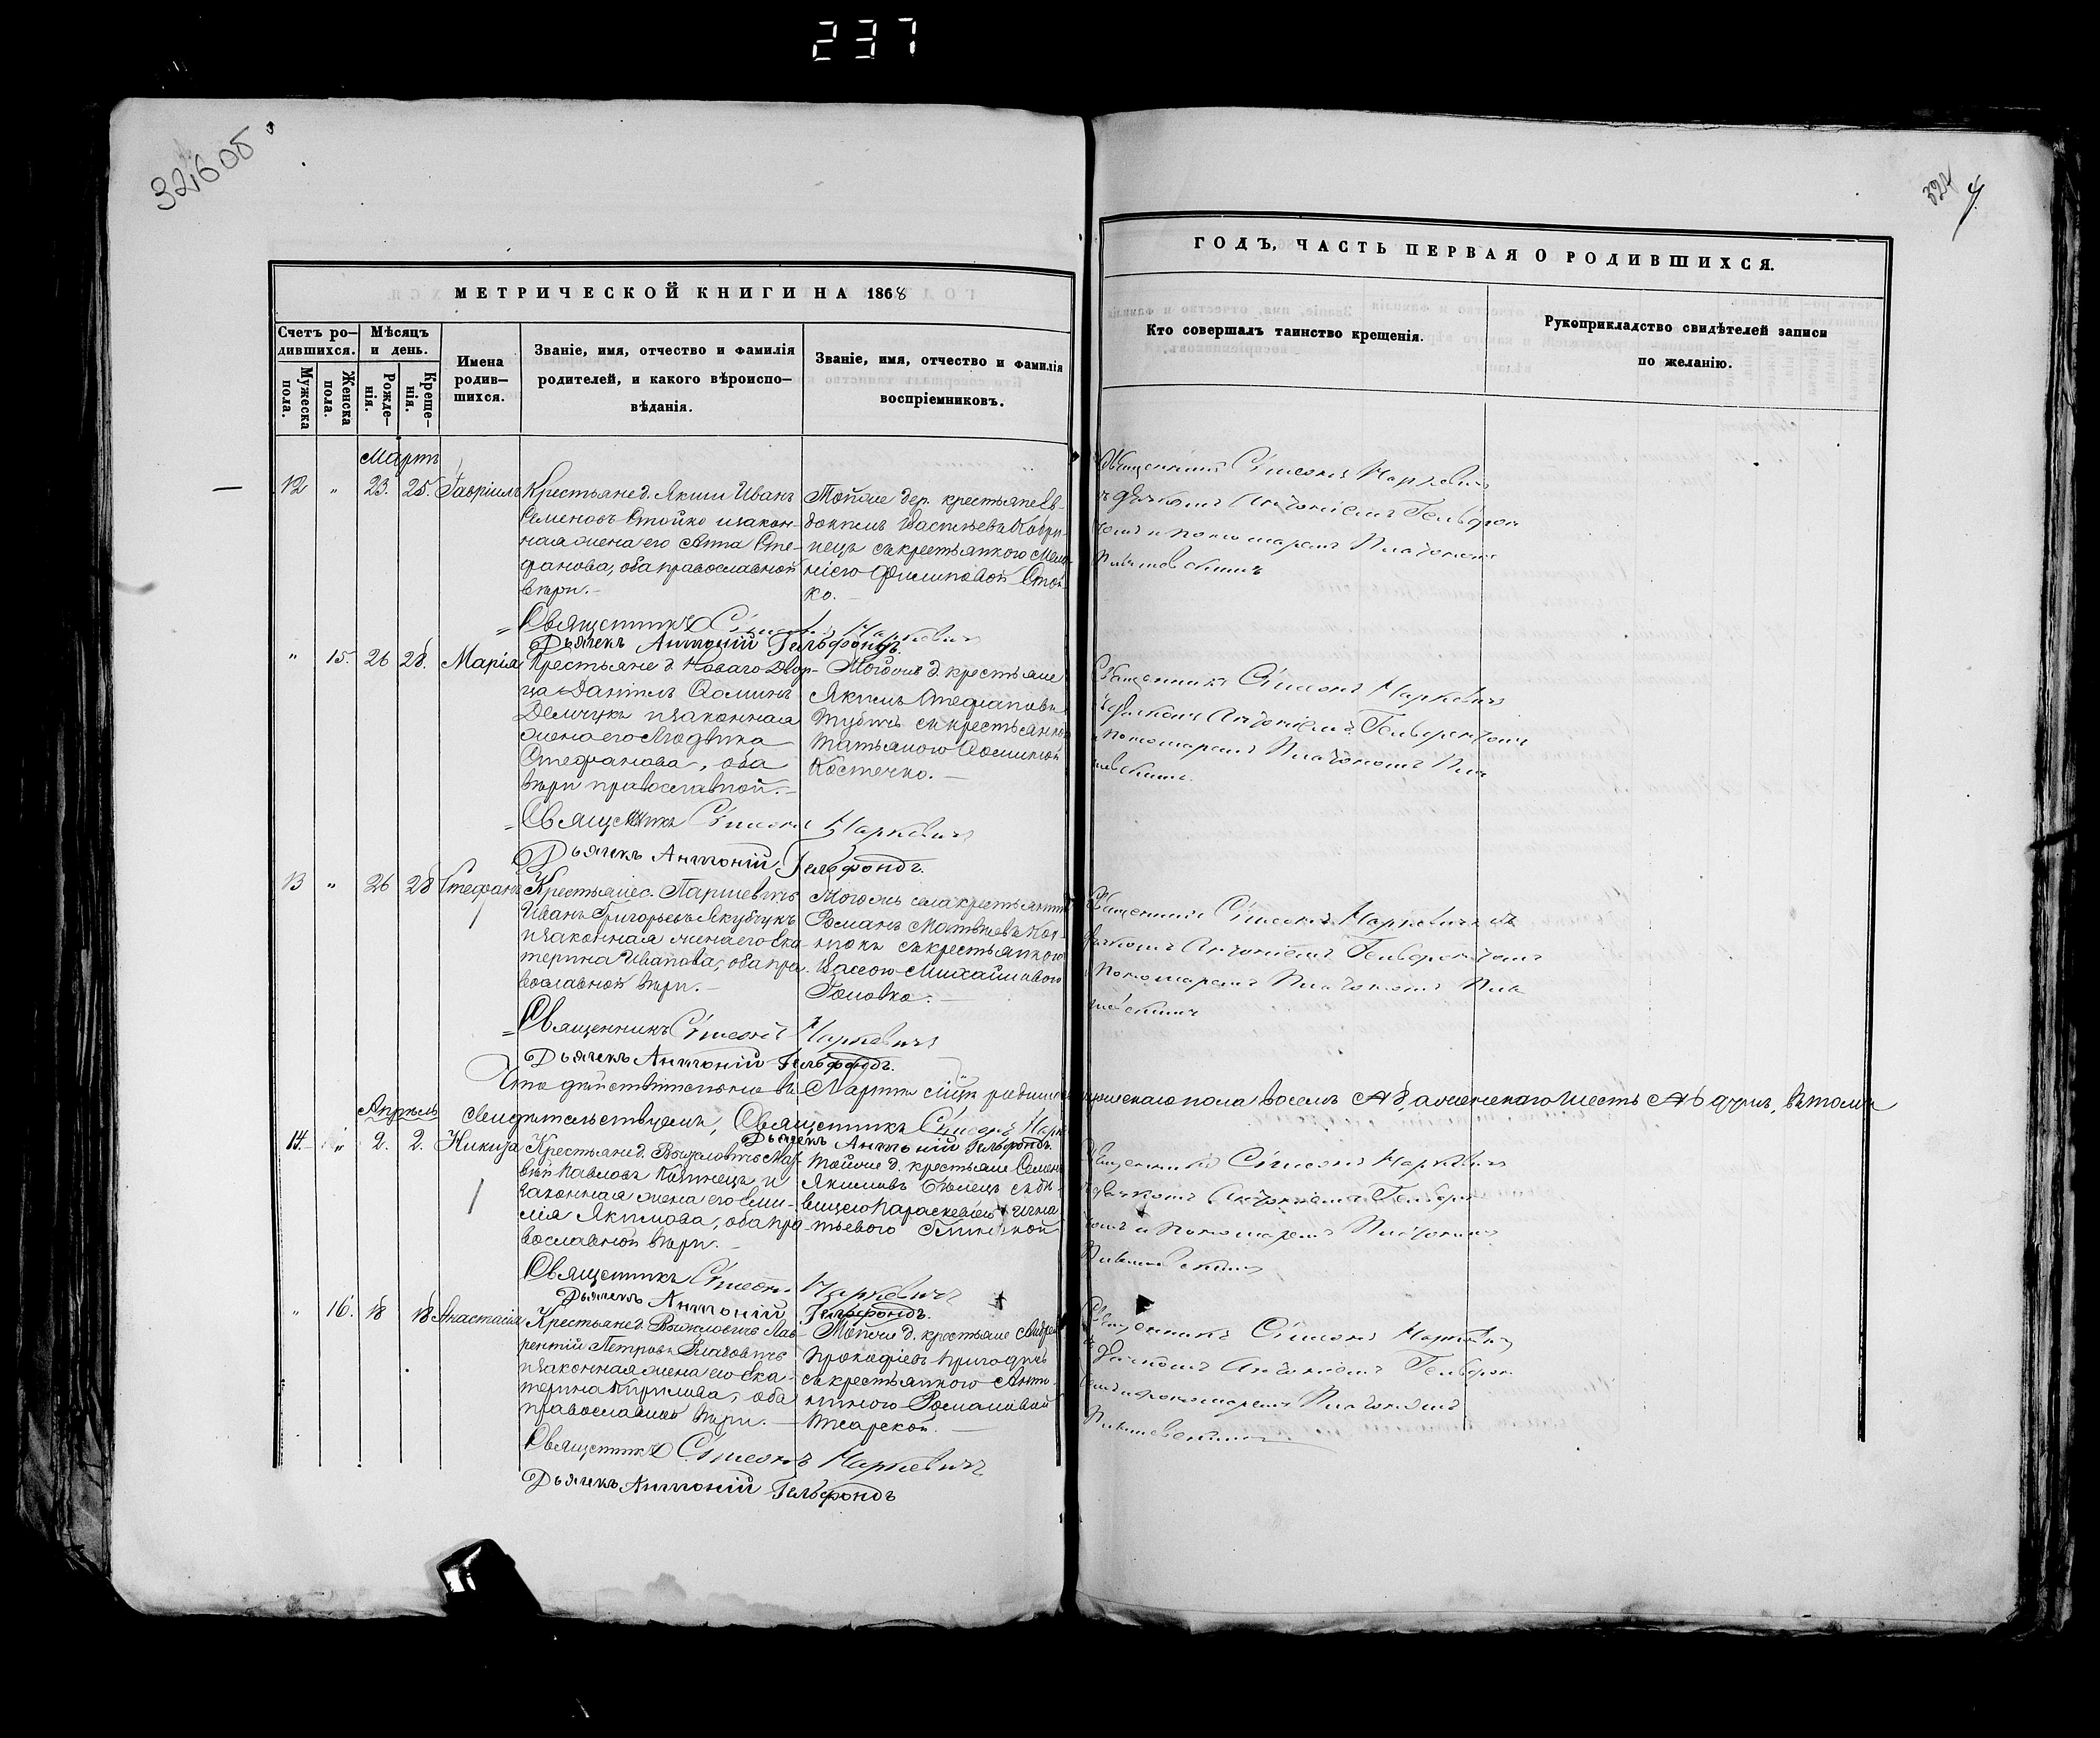 237
321об
324
4
МЕТРИЧЕСКОЙ КНИГИ НА 1868
ГОДЪ, ЧАСТЬ ПЕРВАЯ О РОДИВШИХСЯ.
Счетъ ро-
дившихся.
Мужеска
пола.
Женска
пола.
Мѣсяцъ
и день.
Рожде-
нія.
Креще-
нія.
Имена
родив-
шихся.
Званіе, имя, отчество и фамилія
родителей, и какого вѣроиспо-
вѣданія.
Званіе, имя, отчество и фамилія
воспріемниковъ.
Кто совершалъ таинство крещенія.
Рукоприкладство свидѣтелей записи
по желанію.
Мартъ
12 " 23. 25. Гавріилъ
Крестьяне д. Якши Иванъ
Семеновъ Стойко и закон-
ная жена его Анна Сте-
фанова, оба православной
вѣры.
Тойже дер. крестьяне Ев-
докимъ Васильевъ
нецъ съ крестьянкою Мела-
ніею Филиповой Стой-
ко.
Священникъ Симеонъ Маркевичъ
съ дьячкомъ Антоніемъ Гельфон-
томъ и пономаремъ Платономъ
Священникъ Симеонъ Маркевичъ
Дьячекъ Антоній Гельфондъ.
" 15. 26 28. Марія
Крестьяне д. Новаго Двор-
ца Даніилъ Фоминъ
Демчукъ и законная
жена его
Стефанова, оба
вѣры православной.
Тойже д. крестьяне
Якимъ Стефановъ
съ крестьянкою
Татьяною
Костечко.
Священникъ Симеонъ Маркевичъ
съ дьячкомъ Антоніемъ Гельфонтомъ
и пономаремъ Платономъ
Священникъ Симеонъ Маркевичъ
Дьячекъ Антоній Гельфондъ.
13 " 26 28 Стефанъ
Крестьяне с. Паршевичъ
Иванъ Григорьевъ Якубчукъ
и законная жена его Ека-
терина Иванова, оба пра-
вославной вѣры.
Тогожъ села крестьянинъ
Романъ Матвѣевъ
съ крестьянкою
Вассою Михайловою
Головко.
Священникъ Симеонъ Маркевичъ съ
дьячкомъ Антоніемъ Гельфонтомъ
и пономаремъ Платономъ
Священникъ Симеонъ Маркевичъ
Дьячекъ Антоній Гельфондъ.
Что дѣйствительно въ Мартѣ сіцѣ родилось мужескаго пола восемь а женскаго шесть душъ, въ томъ
свидѣтельствуемъ, Священникъ Симеонъ Марк
Дьячекъ Антоній Гельфондъ.
Апрѣль
14. " 2. 2. Никита
Крестьяне д. Выжловичъ Мат-
вѣй Павловъ и
законная жена его Еми-
лія Якимова, оба пра-
вославной вѣры.
Тойже д. крестьяне Семенъ
Якимовъ съ дѣ-
вицею Параскевіею Игна-
тьевою
Священникъ Симеонъ Маркевичъ
съ дьячкомъ Антоніемъ Гельфон-
томъ и пономаремъ Платономъ
Священникъ Симеонъ Маркевичъ
Дьячекъ Антоній Гельфондъ.
" 16. 18 18 Анастасія
Крестьяне д. Выжловичъ Лав-
рентій Петровъ
и законная жена его Ека-
терина Кирилова, оба
православной вѣры.
Тойже д. крестьяне Андрей
Прокофіевъ Пригодичъ
съ крестьянкою Анто-
ниною Романовой
Священникъ Симеонъ Маркевичъ
съ дьячкомъ Антоніемъ Гельфон-
томъ и пономаремъ Платономъ
Священникъ Симеонъ Маркевичъ
Дьячекъ Антоній Гельфондъ